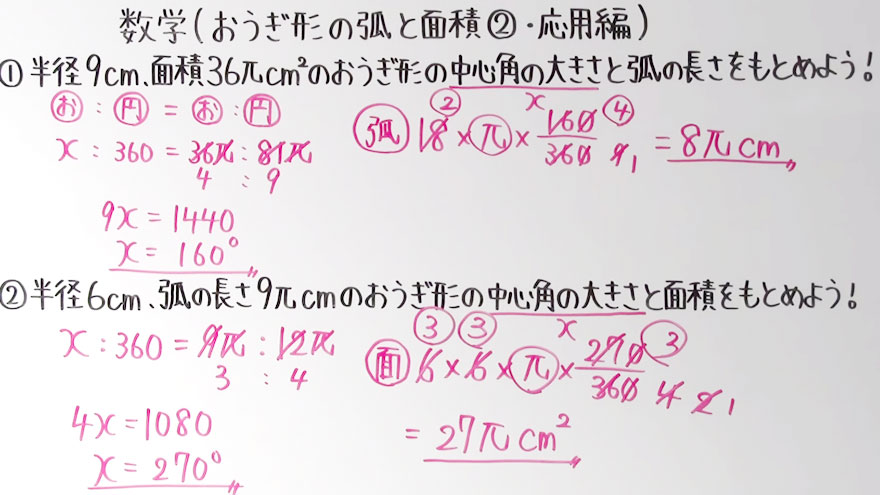 数学(おうぎ形の弧と面積②・応用編)
①半径9cm、面積36πcm²のおうぎ形の中心角の大きさと弧の長さをもとめよう!
お : 円 = お : 円
x : 360 = 36π : 81π
4 : 9
9x = 1440
x = 160°
弧 18 × π × 160/360 = 8πcm
② x ④
9 1
②半径6cm、弧の長さ9πcmのおうぎ形の中心角の大きさと面積をもとめよう!
x : 360 = 9π : 12π
3 : 4
4x = 1080
x = 270°
③ ③ x ③
面 6 × 6 × π × 270/360 4 2 1
= 27πcm²